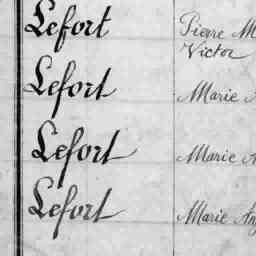 Lefort Pierre M
Victor
Lefort Marie A
Lefort Marie A
Lefort Marie Ang